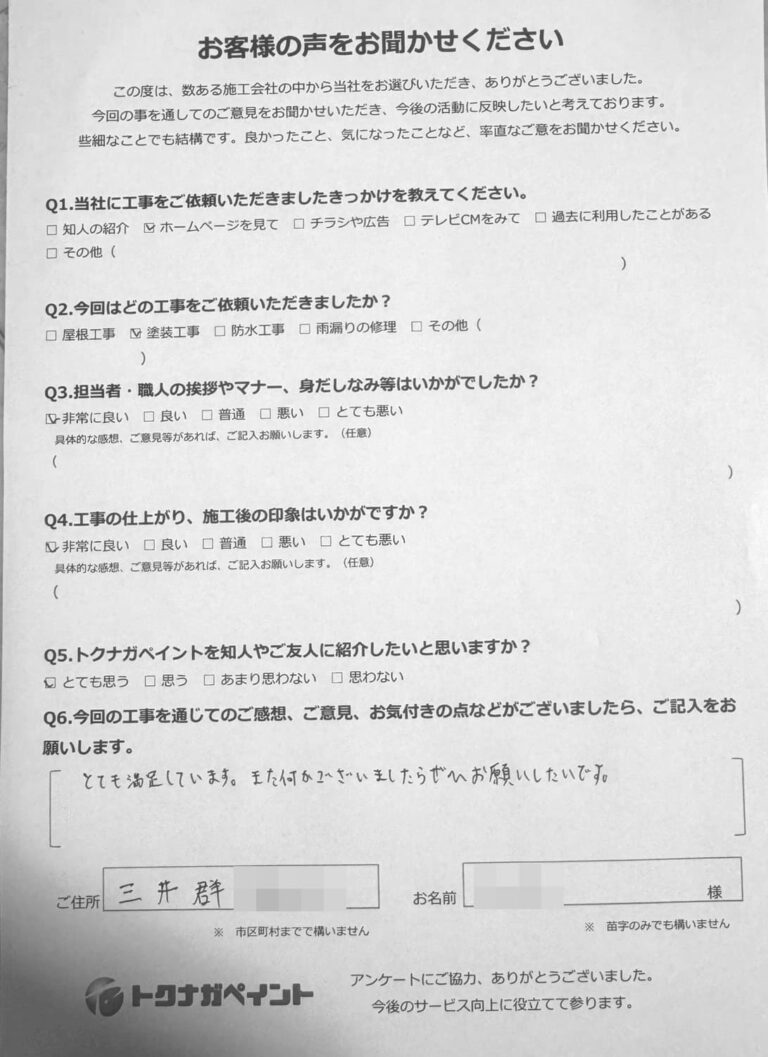 お客様の声をお聞かせください
この度は、数ある施工会社の中から当社をお選びいただき、ありがとうございました。
今回の事を通してのご意見をお聞かせいただき、今後の活動に反映したいと考えております。
些細なことでも結構です。良かったこと、気になったことなど、率直なご意をお聞かせください。
Q1.当社に工事をご依頼いただきましたきっかけを教えてください。
□ 知人の紹介 ☑ ホームページを見て □ チラシや広告 □ テレビCMをみて □ 過去に利用したことがある
□ その他（
）
Q2.今回はどの工事をご依頼いただきましたか？
□ 屋根工事 ☑ 塗装工事 □ 防水工事 □ 雨漏りの修理 □ その他（
）
Q3.担当者・職人の挨拶やマナー、身だしなみ等はいかがでしたか？
☑ 非常に良い □ 良い □ 普通 □ 悪い □ とても悪い
具体的な感想、ご意見等があれば、ご記入お願いします。（任意）
（
）
Q4.工事の仕上がり、施工後の印象はいかがですか？
☑ 非常に良い □ 良い □ 普通 □ 悪い □ とても悪い
具体的な感想、ご意見等があれば、ご記入お願いします。（任意）
（
）
Q5.トクナガペイントを知人やご友人に紹介したいと思いますか？
☑ とても思う □ 思う □ あまり思わない □ 思わない
Q6.今回の工事を通じてのご感想、ご意見、お気付きの点などがございましたら、ご記入をお
願いします。
とても満足しています。また何かございましたらぜひお願いしたいです。
ご住所 三井群 お名前 様
※ 市区町村までで構いません ※ 苗字のみでも構いません
トクナガペイント
アンケートにご協力、ありがとうございました。
今後のサービス向上に役立てて参ります。